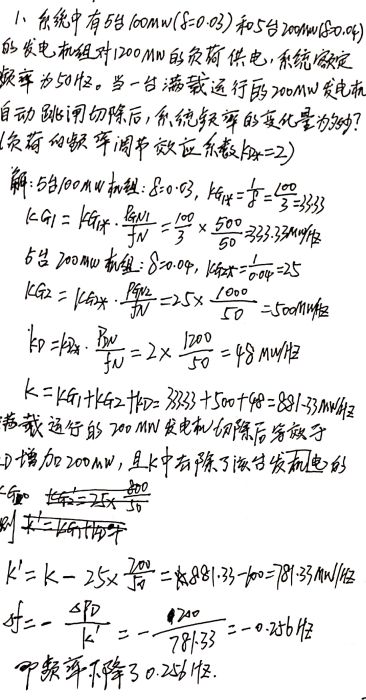 1. 系统中有5台100MW(δ=0.03)和5台200MW(δ=0.04)
的发电机组对1200MW的负荷供电,系统额定
频率为50Hz。当一台满载运行的200MW发电机
自动跳闸切除后,系统频率的变化量为多少?
(负荷的频率调节效应系数KD*=2)
解:5台100MW机组:δ=0.03, KG1*=1/δ=100/3=33.33
KG1=KG1*·PGN1/fN=100/3×500/50=333.33MW/Hz
5台200MW机组:δ=0.04, KG2*=1/0.04=25
KG2=KG2*·PGN2/fN=25×1000/50=500MW/Hz
KD=KD*·PDN/fN=2×1200/50=48MW/Hz
K=KG1+KG2+KD=333.33+500+48=881.33MW/Hz
满载运行的200MW发电机切除后等效于
D增加200MW,且K中去除了该台发电机的
KG2'=25×800/50
则 K'=KG1+KD+
K'=K-25×200/50=881.33-100=781.33MW/Hz
Δf=-ΔPD/K'=-200/781.33=-0.256Hz
即频率下降了0.256Hz.